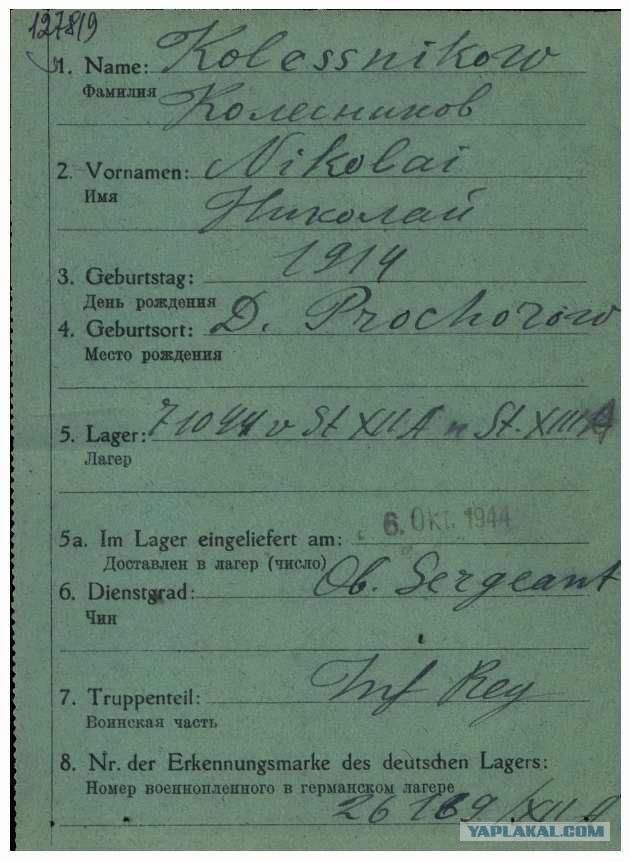 127819
1. Name: Kolessnikow
Фамилия
Колесников
2. Vornamen: Nikolai
Имя
Николай
1914
3. Geburtstag:
День рождения
4. Geburtsort: D. Prochorow
Место рождения
5. Lager: 71044 v St XII A n St. XIII
Лагер
5a. Im Lager eingeliefert am: 6. Okt. 1944
Доставлен в лагер (число)
6. Dienstgrad: Ob. Sergeant
Чин
7. Truppenteil: Inf Reg
Воинская часть
8. Nr. der Erkennungsmarke des deutschen Lagers:
Номер военнопленного в германском лагере
26169/XII A
YAPLAKAL.COM